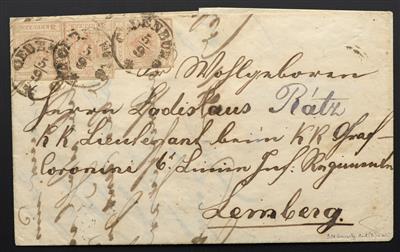 OEDENBURG
Sr Wohlgeboren
Herrn Ladislaus Rátz
KK Lieutenant beim KK Graf
Coronini 6t Linien Inf. Regimente
Lemberg.